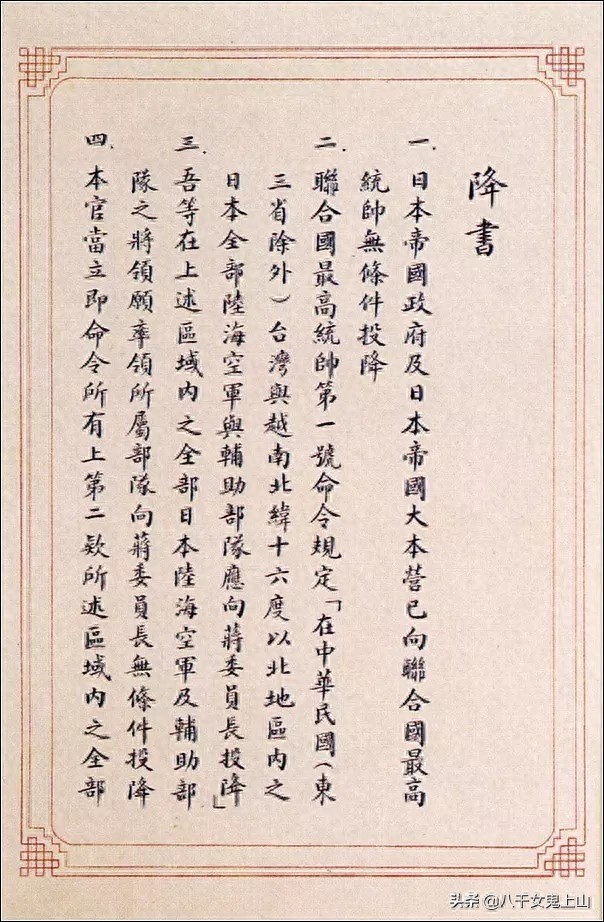 降書
一. 日本帝國政府及日本帝國大本營已向聯合國最高
統帥無條件投降
二. 聯合國最高統帥第一號命令規定「在中華民國(東
三省除外)台灣與越南北緯十六度以北地區內之
日本全部陸海空軍與輔助部隊應向蔣委員長投降」
三. 吾等在上述區域內之全部日本陸海空軍及輔助部
隊之將領願率領所屬部隊向蔣委員長無條件投降
四. 本官當立即命令所有上第二欵所述區域內之全部
头条 @八千女鬼上山